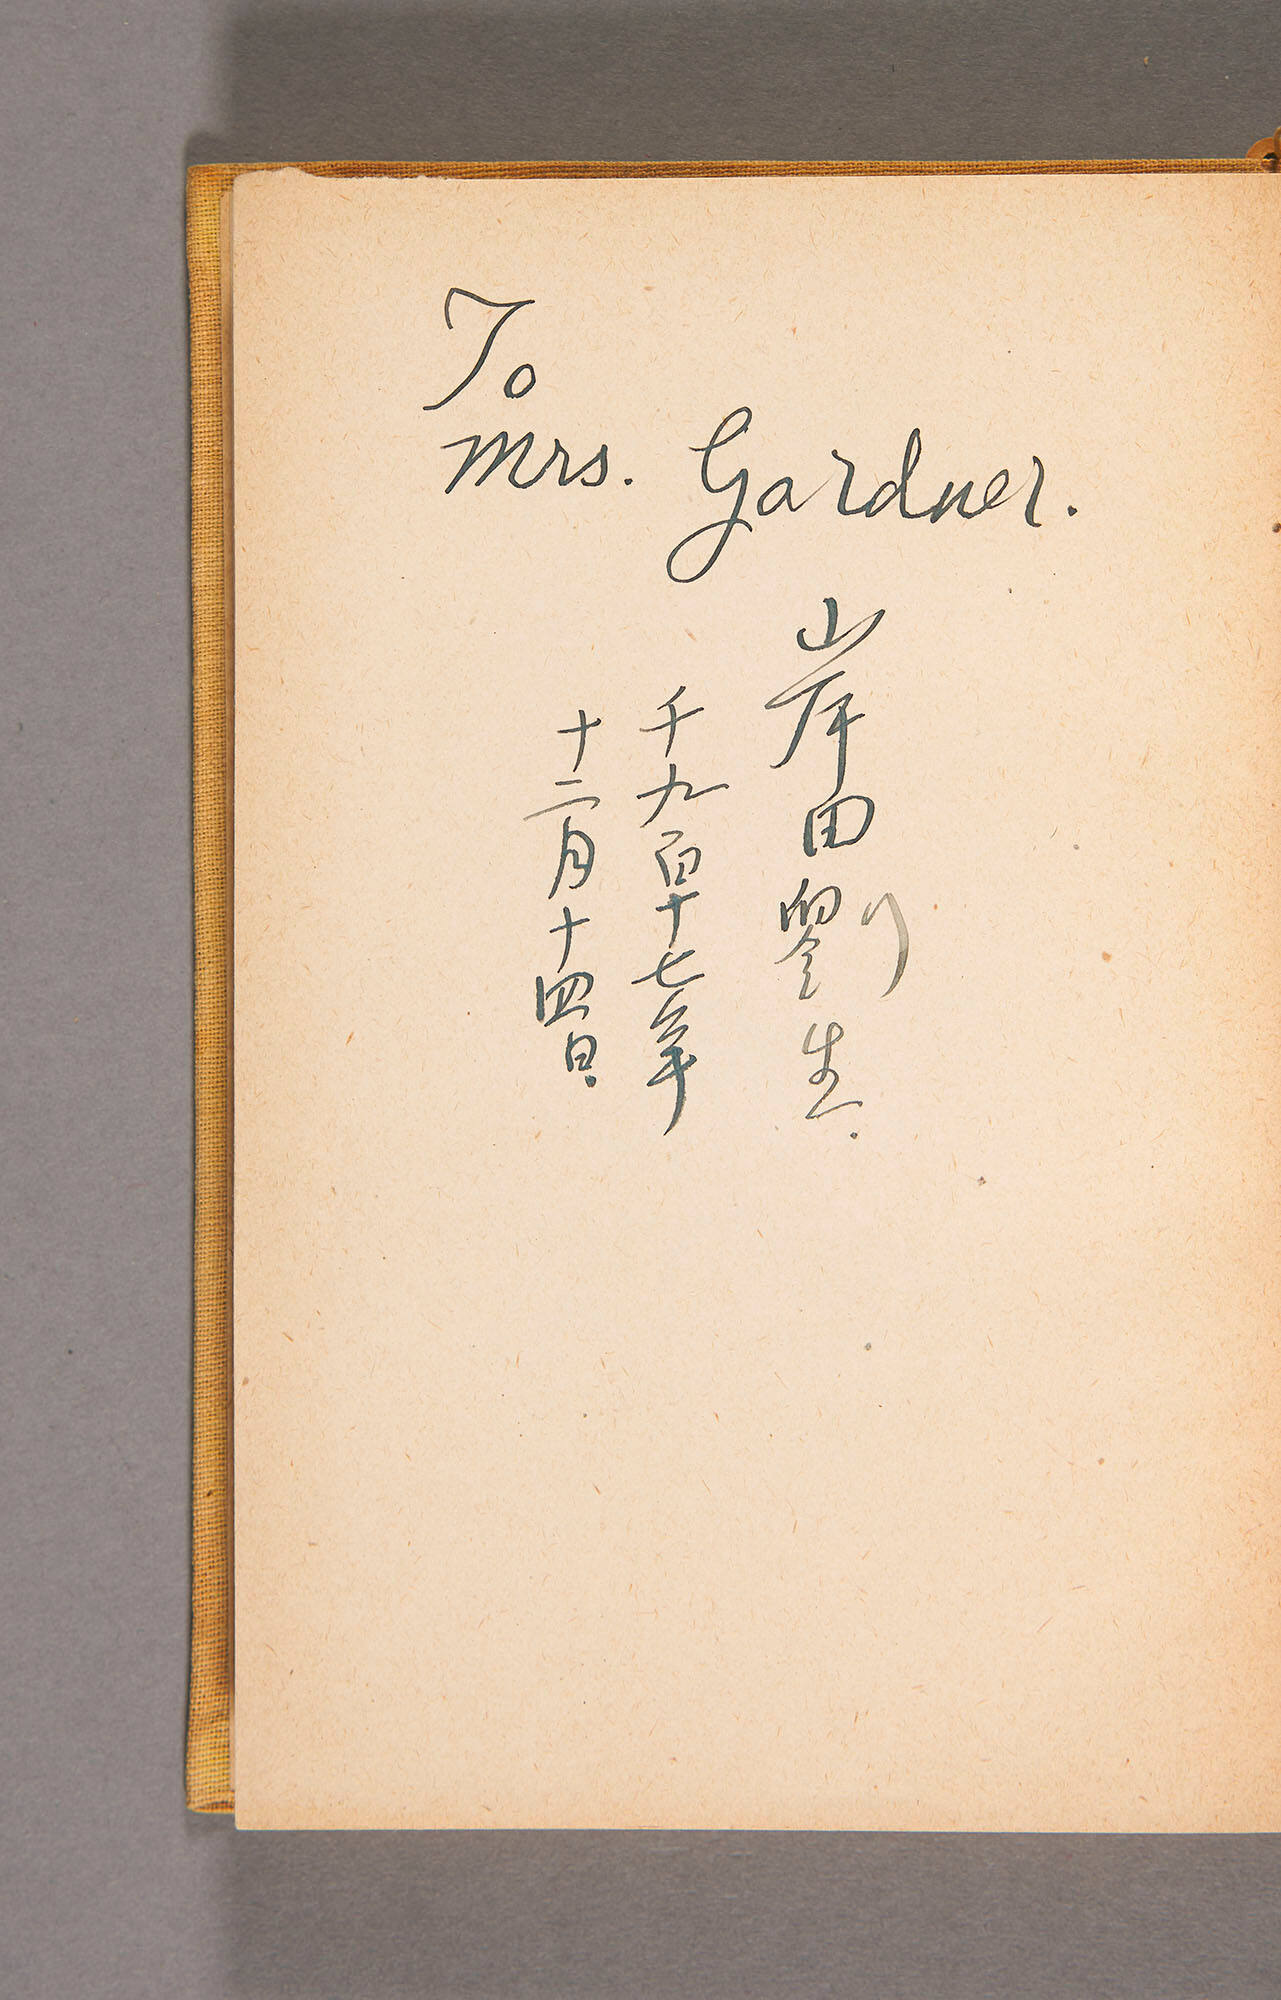 To
Mrs. Gardner.
岸田劉生.
千九百十七年
十二月十四日.